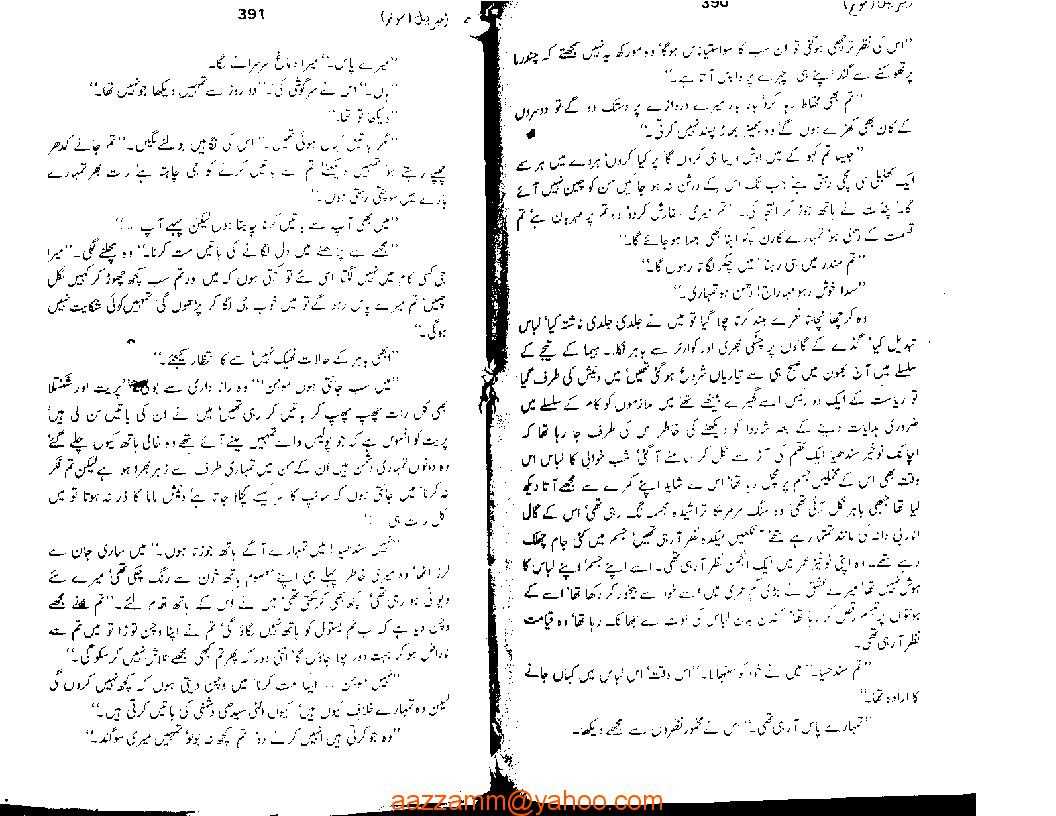 390
"اس کی نظر ترچھی ہوگئی تو ان سب کا سواستیاناس ہوگا' وہ مورکھ یہ نہیں سمجھتے کہ چندرما
پر تھوکنے سے گند اپنے ہی چہرے پر واپس آتا ہے۔"
"تم بھی محتاط رہا کرو' بار بار میرے دروازے پر دستک دو گے تو دوسروں
کے کان بھی کھڑے ہوں گے' وہ بھیڑ بھاڑ پسند نہیں کرتی۔"
"جیسا تم کہو گے میں اوش ایسا ہی کروں گا پر کیا کروں' ہردے میں ہر سے
ایک کھلبلی سی مچی رہتی ہے' جب تک اس کے درشن نہ ہو جائیں من کو چین نہیں آئے
گا۔" پنڈت نے ہاتھ جوڑ کر التجا کی۔ "تم میری سفارش کردو' وہ تم پر مہربان ہے' تم
قسمت کے دھنی ہو' تمہارے کارن کچھ اپنا بھی بھلا ہو جائے گا۔"
"تم مندر میں ہی رہنا' میں چکر لگاتا رہوں گا۔"
"سدا خوش رہو مہاراج! دھن ہو تمہاری۔"
وہ کرچھا نچاتا نعرے بلند کرتا چلا گیا تو میں نے جلدی جلدی ناشتہ کیا' لباس
تبدیل کیا' گنڈے کے گالوں پر چٹکی بھری اور کوارٹر سے باہر نکلا۔ ہیما کے تیجے کے
سلسلے میں آنند بھون میں صبح ہی سے تیاریاں شروع ہوگئی تھیں' میں دنیش کی طرف گیا
تو ریاست کے ایک دو رئیس اسے گھیرے بیٹھے تھے' میں ملازموں کو کام کے سلسلے میں
ضروری ہدایات دینے کے بعد شاردا کو دیکھنے کی خاطر اس کی طرف جا رہا تھا کہ
اچانک نوخیز سندھیا ایک تھم کی آڑ سے نکل کر سامنے آگئی' شب خوابی کا لباس اس
وقت بھی اس کے مخملیں جسم پر مچل رہا تھا' اس نے شاید اپنے کمرے سے مجھے آتا دیکھ
لیا تھا جبھی باہر نکل آئی تھی' وہ سنگ مرمر کا تراشیدہ مجسمہ لگ رہی تھی' اس کے گال
انار کے دانہ کی مانند تمتما رہے تھے' آنکھیں میکدہ نظر آ رہی تھیں' جسم میں کئی جام چھلک
رہے تھے۔ وہ اپنی نوخیز عمر میں ایک انجمن نظر آ رہی تھی۔ اسے اپنے جسم' اپنے لباس کا
ہوش نہیں تھا' میرے عشق نے بڑی کم عمری میں اسے خود سے بیخود کر رکھا تھا' اس کے
ہونٹوں پر تبسم رقص کر رہا تھا' کندن بدن لباس کی اوٹ سے جھانک رہا تھا' وہ قیامت
نظر آ رہی تھی۔
"تم سندھیا۔" میں نے خود کو سنبھالا۔ "اس وقت' اس لباس میں کہاں جانے
کا ارادہ تھا۔"
"تمہارے پاس آ رہی تھی۔" اس نے مخمور نظروں سے مجھے دیکھا۔
391
"میرے پاس۔" میرا دماغ سرسرانے لگا۔
"ہاں۔" اس نے سرگوشی کی۔ "دو روز سے تمہیں دیکھا جو نہیں تھا۔"
"دیکھا تو تھا۔"
"مگر باتیں کہاں ہوئی تھیں۔" اس کی نگاہیں بولنے لگیں۔ "تم جانے کدھر
چھپے رہتے ہو' تمہیں دیکھنے' تم سے باتیں کرنے کا جی چاہتا ہے' رات بھر تمہارے
بارے میں سوچتی رہتی ہوں۔"
"میں بھی آپ سے باتیں کرنا چاہتا ہوں لیکن پہلے آپ ..."
"مجھے سے پڑھنے میں دل لگانے کی باتیں مت کرنا۔" وہ مچلنے لگی۔ "میرا
جی کسی کام میں نہیں لگتا' اسی لئے تو کہتی ہوں کہ میں اور تم سب کچھ چھوڑ کر کہیں نکل
چلیں' تم میرے پاس رہو گے تو میں خوب جی لگا کر پڑھوں گی' تمہیں کوئی شکایت نہیں
ہوگی۔"
"ابھی باہر کے حالات ٹھیک نہیں' سے کا انتظار کیجئے۔"
"میں سب جانتی ہوں موہن!" وہ راز داری سے بولی۔ "پریت اور شکنتلا
بھی کل رات چھپ چھپ کر باتیں کر رہی تھیں' میں نے ان کی باتیں سن لی ہیں'
پریت کو افسوس ہے کہ جو پولیس والے تمہیں لینے آئے تھے وہ خالی ہاتھ کیوں چلے گئے'
وہ دونوں تمہاری دشمن ہیں' ان کے من میں تمہاری طرف سے زہر بھرا ہوا ہے لیکن تم فکر
نہ کرنا' میں جانتی ہوں کہ سانپ کا سر کیسے کچلا جاتا ہے' دنیش ماما کا ڈر نہ ہوتا تو میں
کل رات ہی ..."
"نہیں سندھیا! میں تمہارے آگے ہاتھ جوڑتا ہوں۔" میں ساری جان سے
لرز اٹھا' وہ میری خاطر پہلے بھی اپنے معصوم ہاتھ خون سے رنگ چکی تھی' میرے لئے
دیوانی ہو رہی تھی' کچھ بھی کر سکتی تھی' میں نے اس کے ہاتھ تھام لئے۔ "تم نے مجھے
وچن دیا ہے کہ اب تم پستول کو ہاتھ نہیں لگاؤ گی' تم نے اپنا وچن توڑا تو میں تم سے
ناراض ہو کر بہت دور چلا جاؤں گا' اتنی دور کہ پھر تم کبھی مجھے تلاش نہیں کر سکو گی۔"
"نہیں موہن ... ایسا مت کرنا' میں وچن دیتی ہوں کہ کچھ نہیں کروں گی
لیکن وہ تمہارے خلاف کیوں ہیں' کیوں الٹی سیدھی دشمنی کی باتیں کرتی ہیں۔"
"وہ جو کرتی ہیں انہیں کرنے دو' تم کچھ نہ بولو' تمہیں میری سوگند۔"
aazzamm@yahoo.com